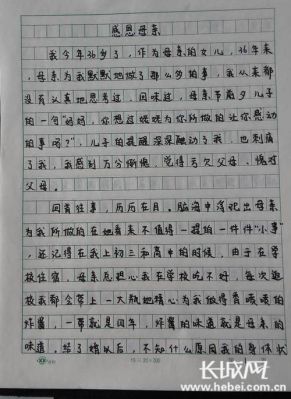 感恩母亲
我今年36岁了,作为母亲的女儿,36年来
,母亲为我默默地做了那么多的事,我从来都
没有认真地思考过、回味过,母亲节前夕儿子
的一句"妈妈,你想过姥姥为你所做的让你感动
的事吗?",儿子的提醒深深触动了我,也刺痛
了我,我感到万分惭愧,觉得亏欠父母,愧对
父母。
回首往事,历历在目,脑海中浮现出母亲
为我所做的在她看来不值得一提的一件件"小事"
,还记得在我上初三和高中的时候,由于在学
校住宿,母亲总担心我在学校吃不好,每次返
校我都会带上一大瓶她精心为我做得香喷喷的
炸酱,一带就是四年,炸酱的味道就是母亲的
味道。结了婚以后,不知什么原因我的身体状
长城网
www.hebei.com.cn